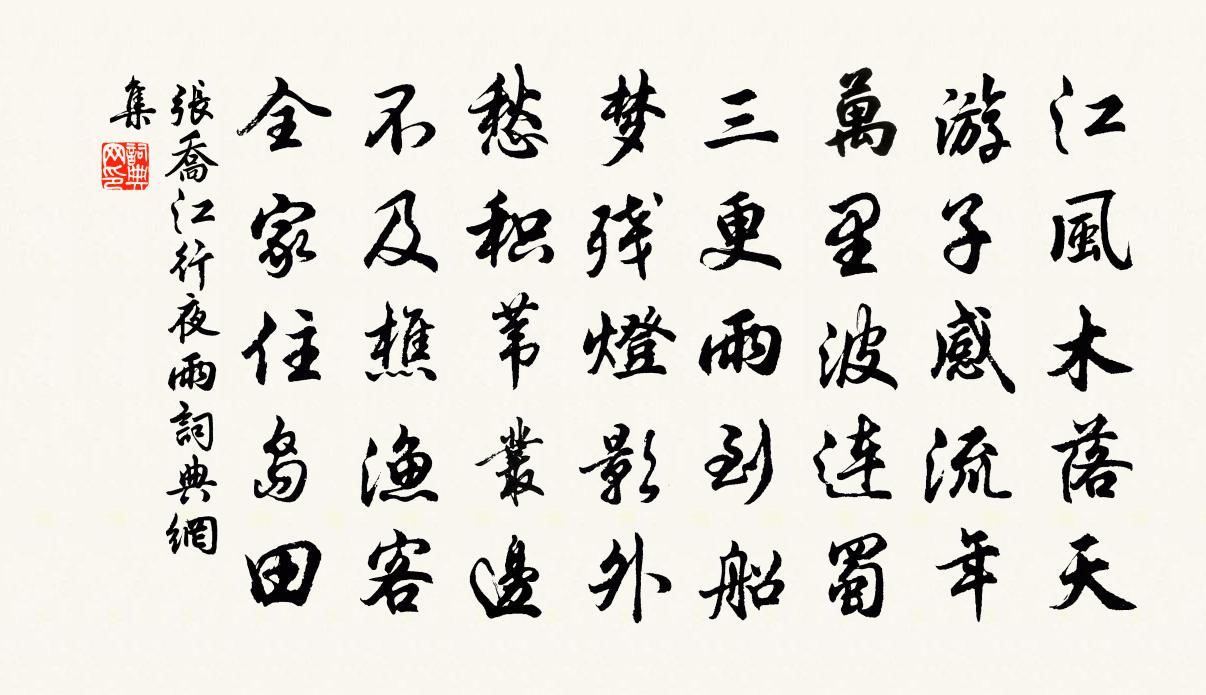 江風木落天
游子感流年
萬里波连蜀
三更雨到船
梦残燈影外
愁积苇叢邊
不及樵漁客
全家住岛田
張喬江行夜雨詞典網
集
詞典
网印